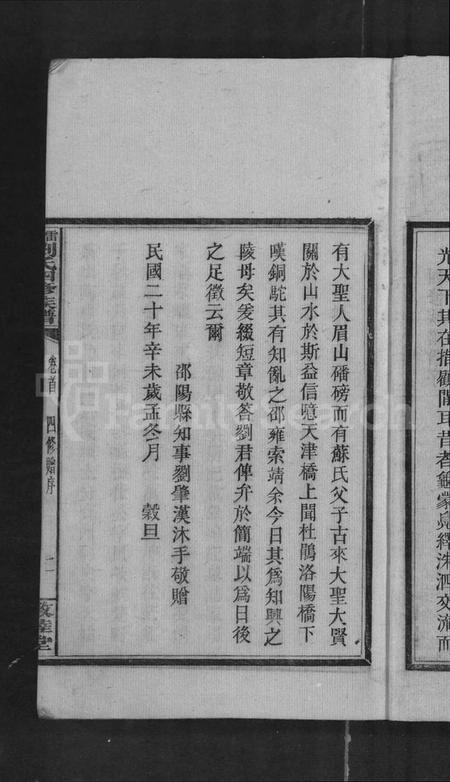 光天下其在指顧間耳昔者龜蒙鳧繹洙泗交流而
有大聖人眉山磻磅而有蘇氏父子古來大聖大賢
關於山水於斯益信噫天津橋上聞杜鵑洛陽橋下
嘆銅駝其有知亂之邵雍索靖余今日其爲知興之
陵母矣爰綴短章敬答劉君俾弁於簡端以爲日後
之足徵云爾
邵陽縣知事劉肇漢沐手敬贈
民國二十年辛未歲孟冬月 穀旦
劉氏四修族譜
卷首 四修贈序
二
敦睦堂
FamilySearch